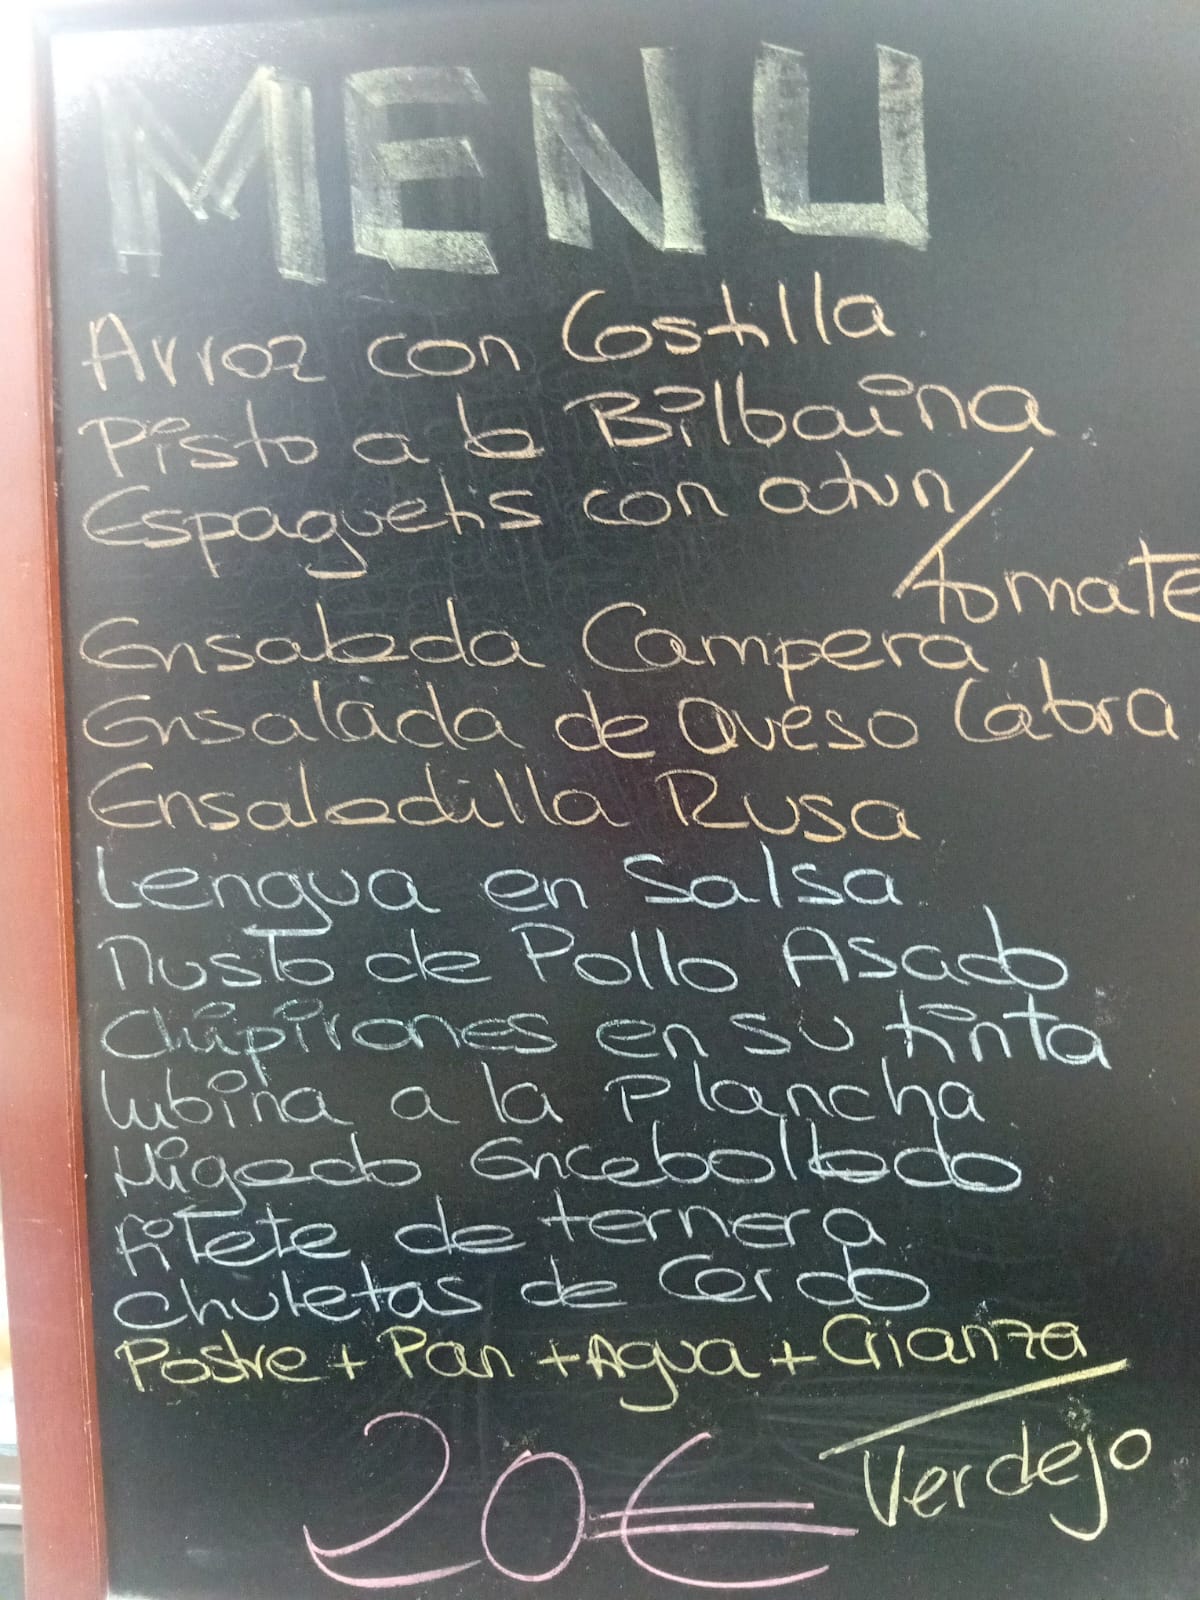 MENU
Arroz con Costilla
Pisto a la Bilbaina
Espaguetis con atun/
tomate
Ensalada Campera
Ensalada de Queso Cabra
Ensaladilla Rusa
Lengua en Salsa
Muslo de Pollo Asado
Chipirones en su tinta
Lubina a la Plancha
Higado Encebollado
filete de ternera
chuletas de Cerdo
Postre + Pan + Agua + Crianza/
Verdejo
20€